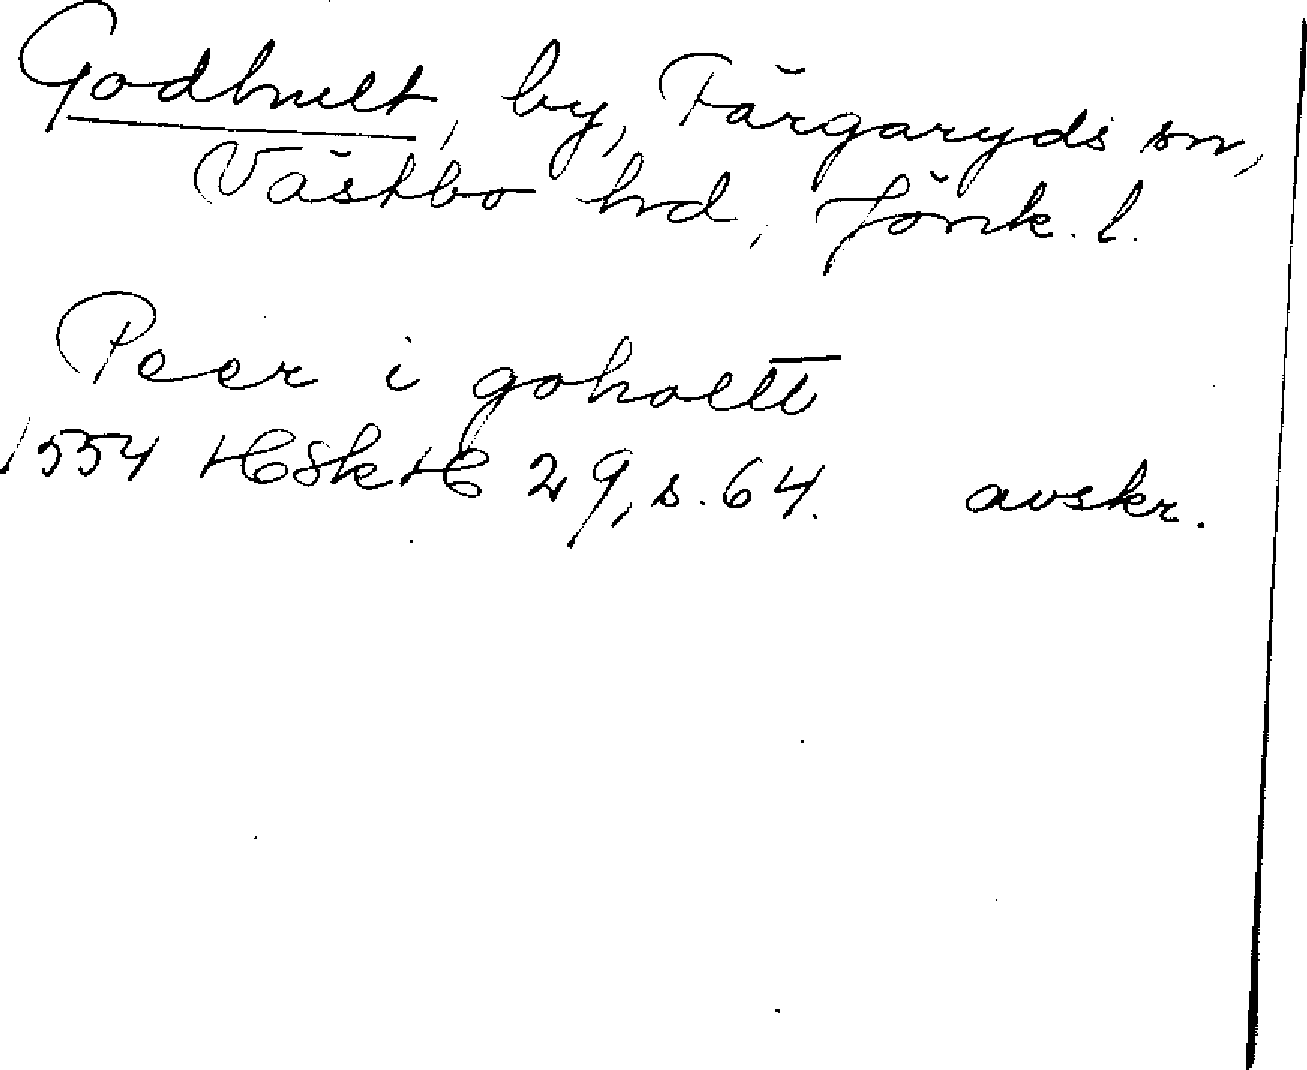 Godhult, by, Färgaryds sn,
Västbo hd, Jönk. l.
Peer i goholtt
1554 HSkH 29, s. 64. avskr.